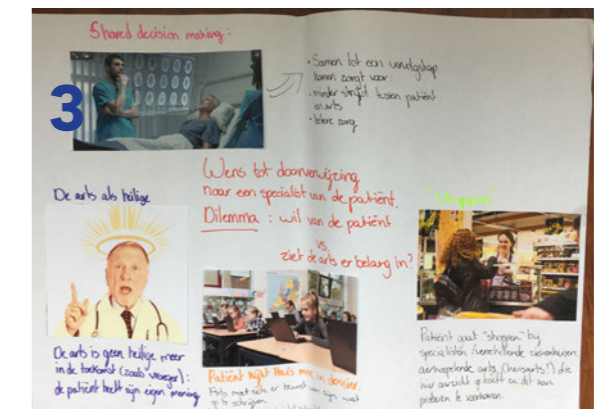 Shared decision making:
3
• Samen tot een vervolgstap
komen zorgt voor:
- minder strijd tussen patiënt
en arts
- betere zorg
Wens tot doorverwijzing
naar een specialist van de patiënt.
Dilemma: wil van de patiënt
vs.
ziet de arts er belang in?
De arts als heilige
De arts is geen heilige meer
in de toekomst (zoals vroeger):
de patiënt heeft zijn eigen mening
Patiënt kijkt thuis mee in dossier.
Arts moet zich er bewust van zijn wat
"Shoppen"
Patiënt gaat "shoppen" bij
specialisten/verschillende ziekenhuizen.
arts (huisarts!) die
hier en dit kan
proberen te voorkomen.